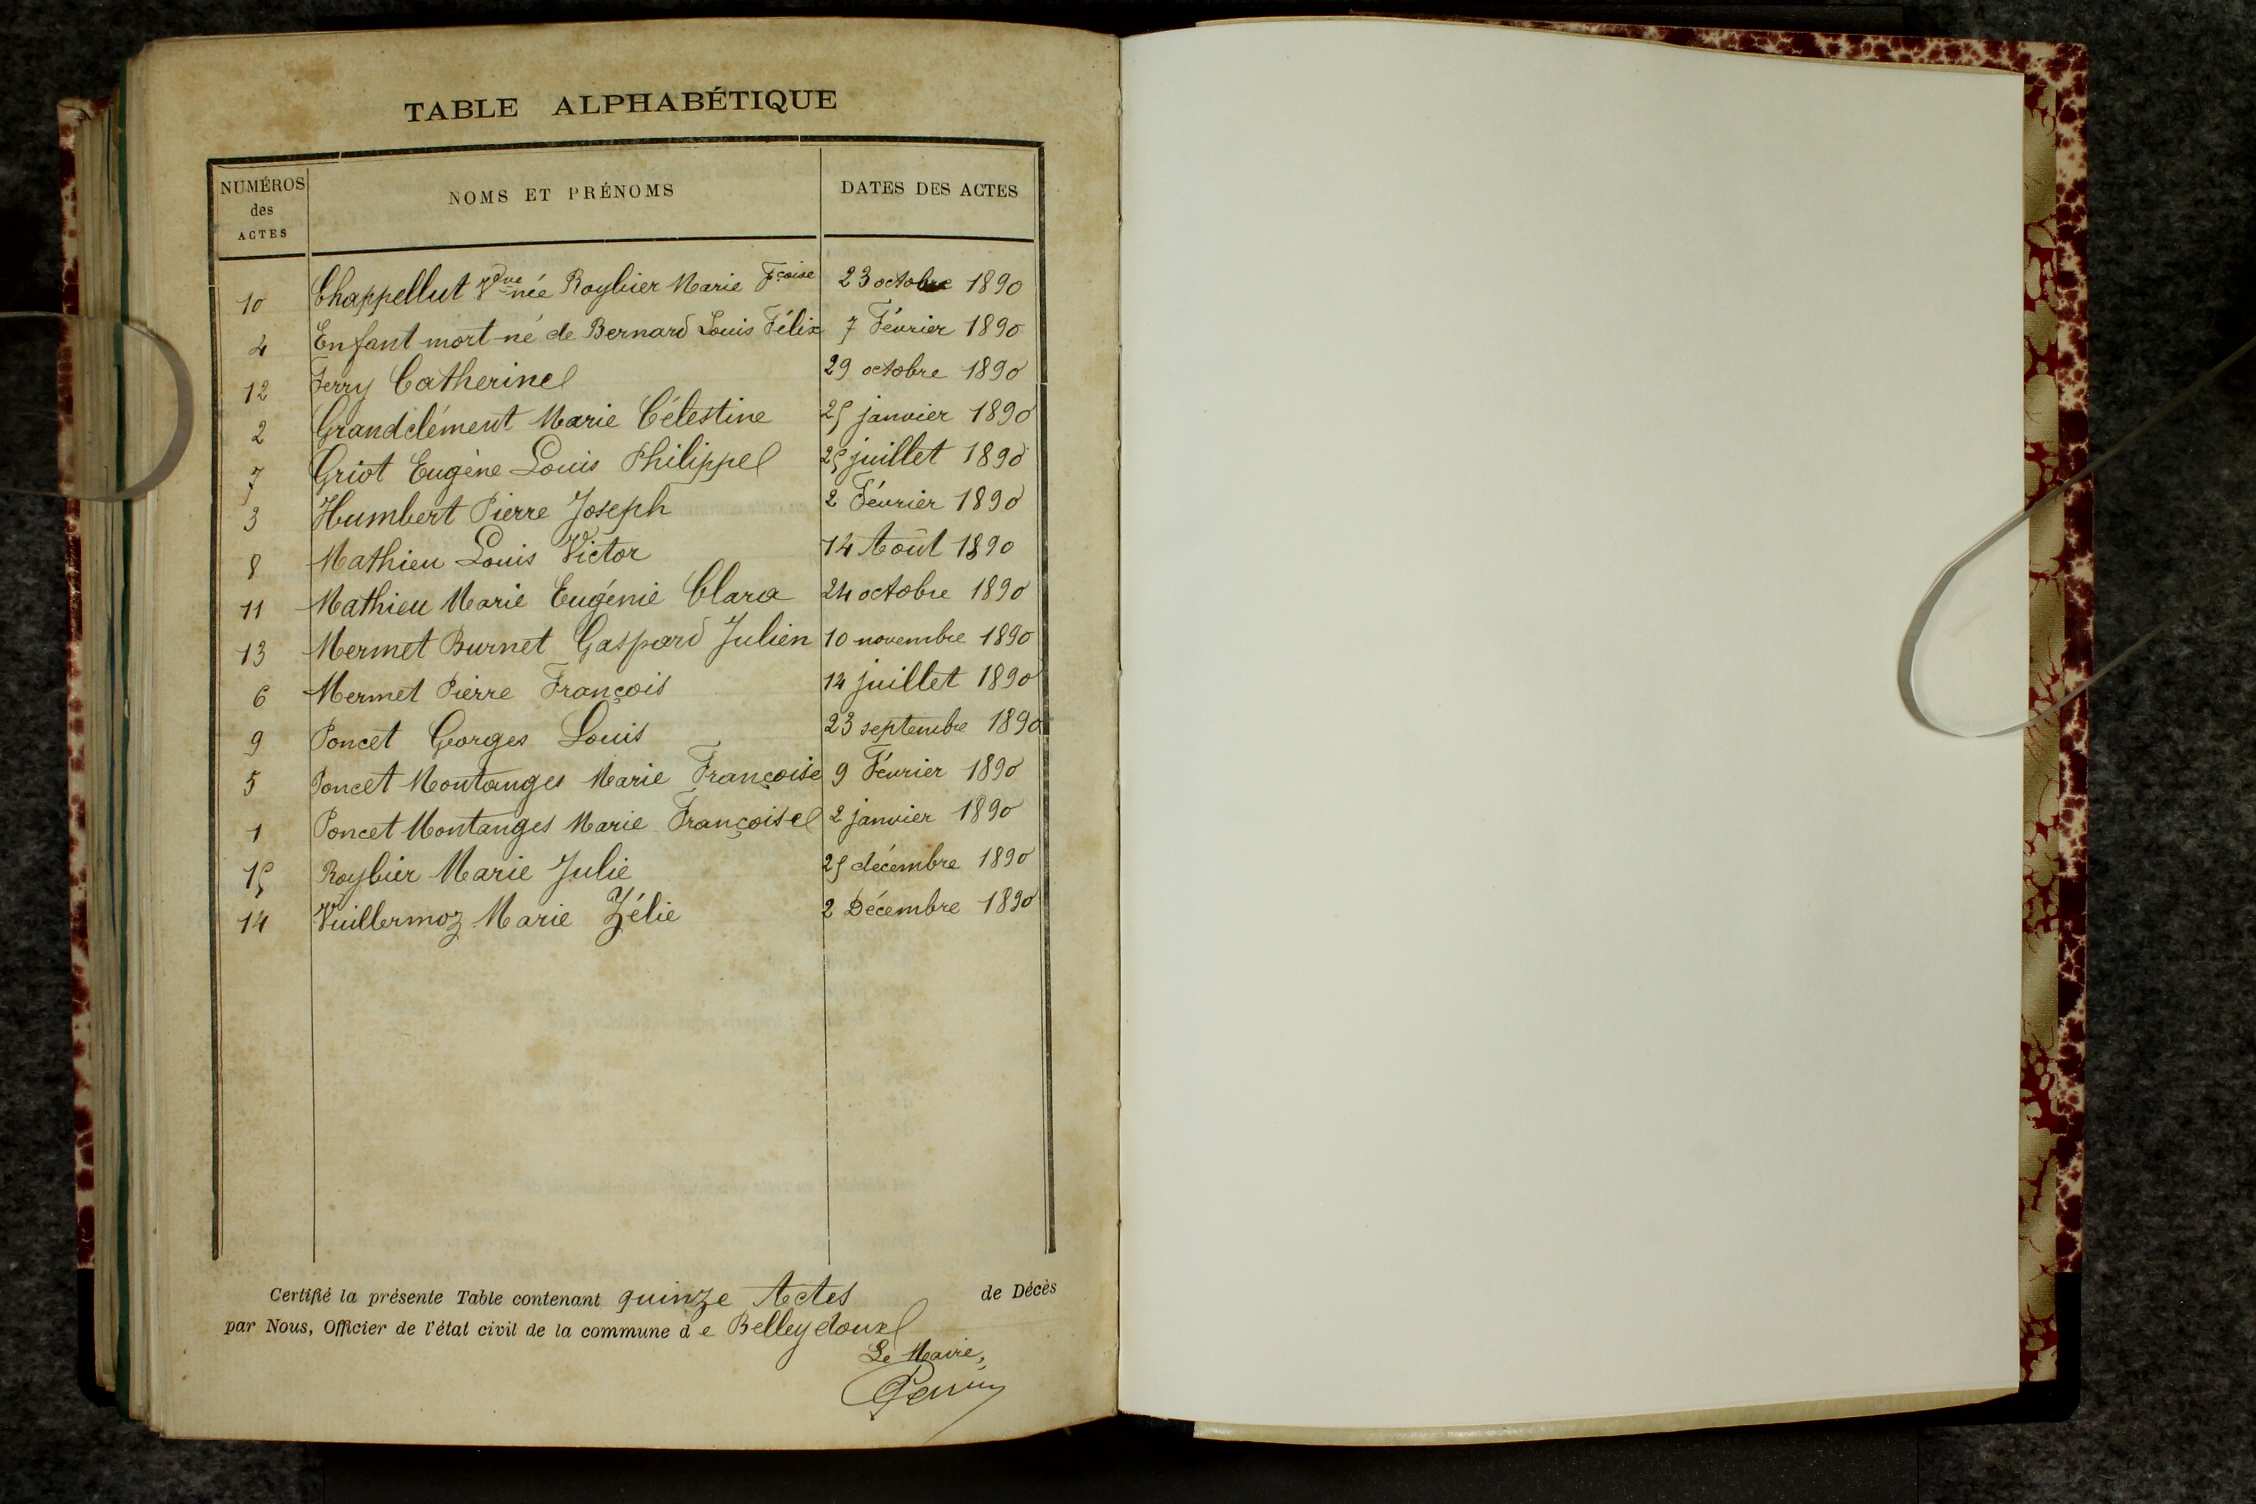 TABLE ALPHABÉTIQUE
NUMÉROS des ACTES NOMS ET PRÉNOMS DATES DES ACTES
10 Chappellut Vve née Roybier Marie Fçoise 23 octobre 1890
4 Enfant mort-né de Bernard Louis Félix 7 Février 1890
12 Ferry Catherine 29 octobre 1890
2 Grandclément Marie Célestine 25 janvier 1890
7 Griot Eugène Louis Philippe 25 juillet 1890
3 Humbert Pierre Joseph 2 Février 1890
8 Mathieu Louis Victor 14 Août 1890
11 Mathieu Marie Eugénie Clara 24 octobre 1890
13 Mermet Burnet Gaspard Julien 10 novembre 1890
6 Mermet Pierre François 14 juillet 1890
9 Poncet Georges Louis 23 septembre 1890
5 Poncet Montanges Marie Françoise 9 Février 1890
1 Poncet Montanges Marie Françoise 2 janvier 1890
15 Roybier Marie Julie 25 décembre 1890
14 Vuillermoz Marie Zélie 2 Décembre 1890
Certifié la présente Table contenant quinze Actes de Décès
par Nous, Officier de l'état civil de la commune de Belleydoux
Le Maire,